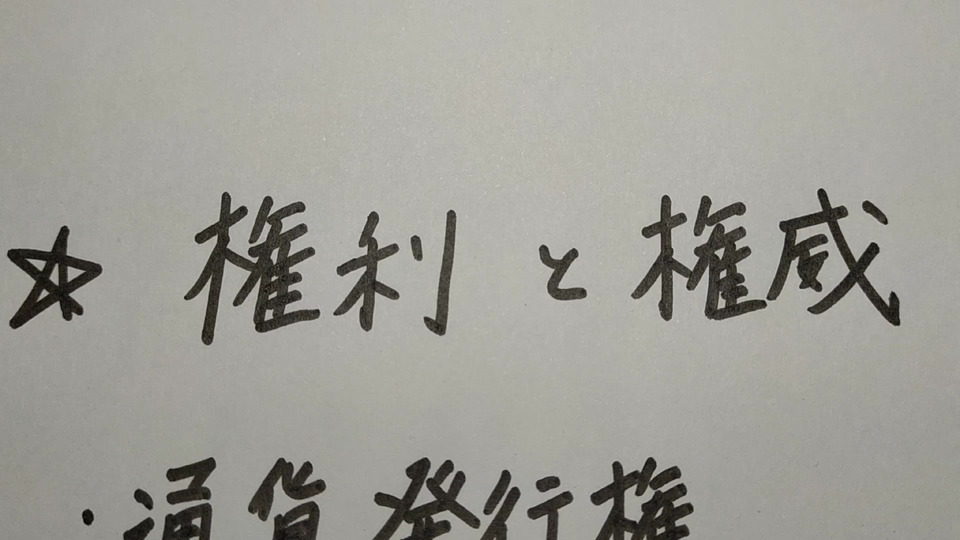 ☆ 権利と権威
・通貨発行権